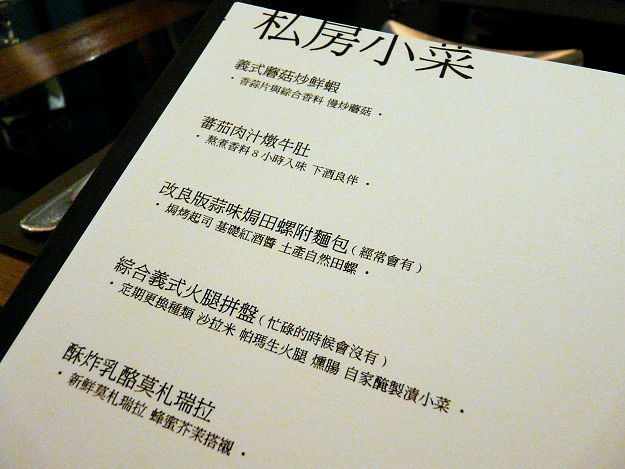 私房小菜
義式蘑菇炒鮮蝦
· 香蒜片與綜合香料 慢炒蘑菇 ·
蕃茄肉汁燉牛肚
· 熬煮香料8小時入味 下酒良伴 ·
改良版蒜味焗田螺附麵包(經常會有)
· 焗烤起司 基礎紅酒醬 土產自然田螺 ·
綜合義式火腿拼盤(忙碌的時候會沒有)
· 定期更換種類 沙拉米 帕瑪生火腿 燻腸 自家醃製漬小菜 ·
酥炸乳酪莫札瑞拉
· 新鮮莫札瑞拉 蜂蜜芥茉搭襯 ·